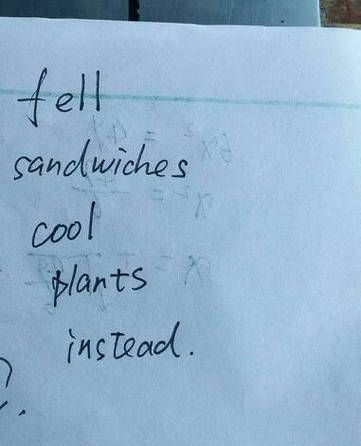 fell
sandwiches
cool
plants
instead.